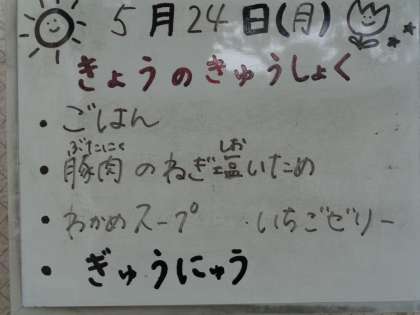 5月24日(月)
きょうのきゅうしょく
・ごはん
ぶたにく しお
・豚肉のねぎ塩いため
・わかめスープ ・いちごゼリー
・ぎゅうにゅう